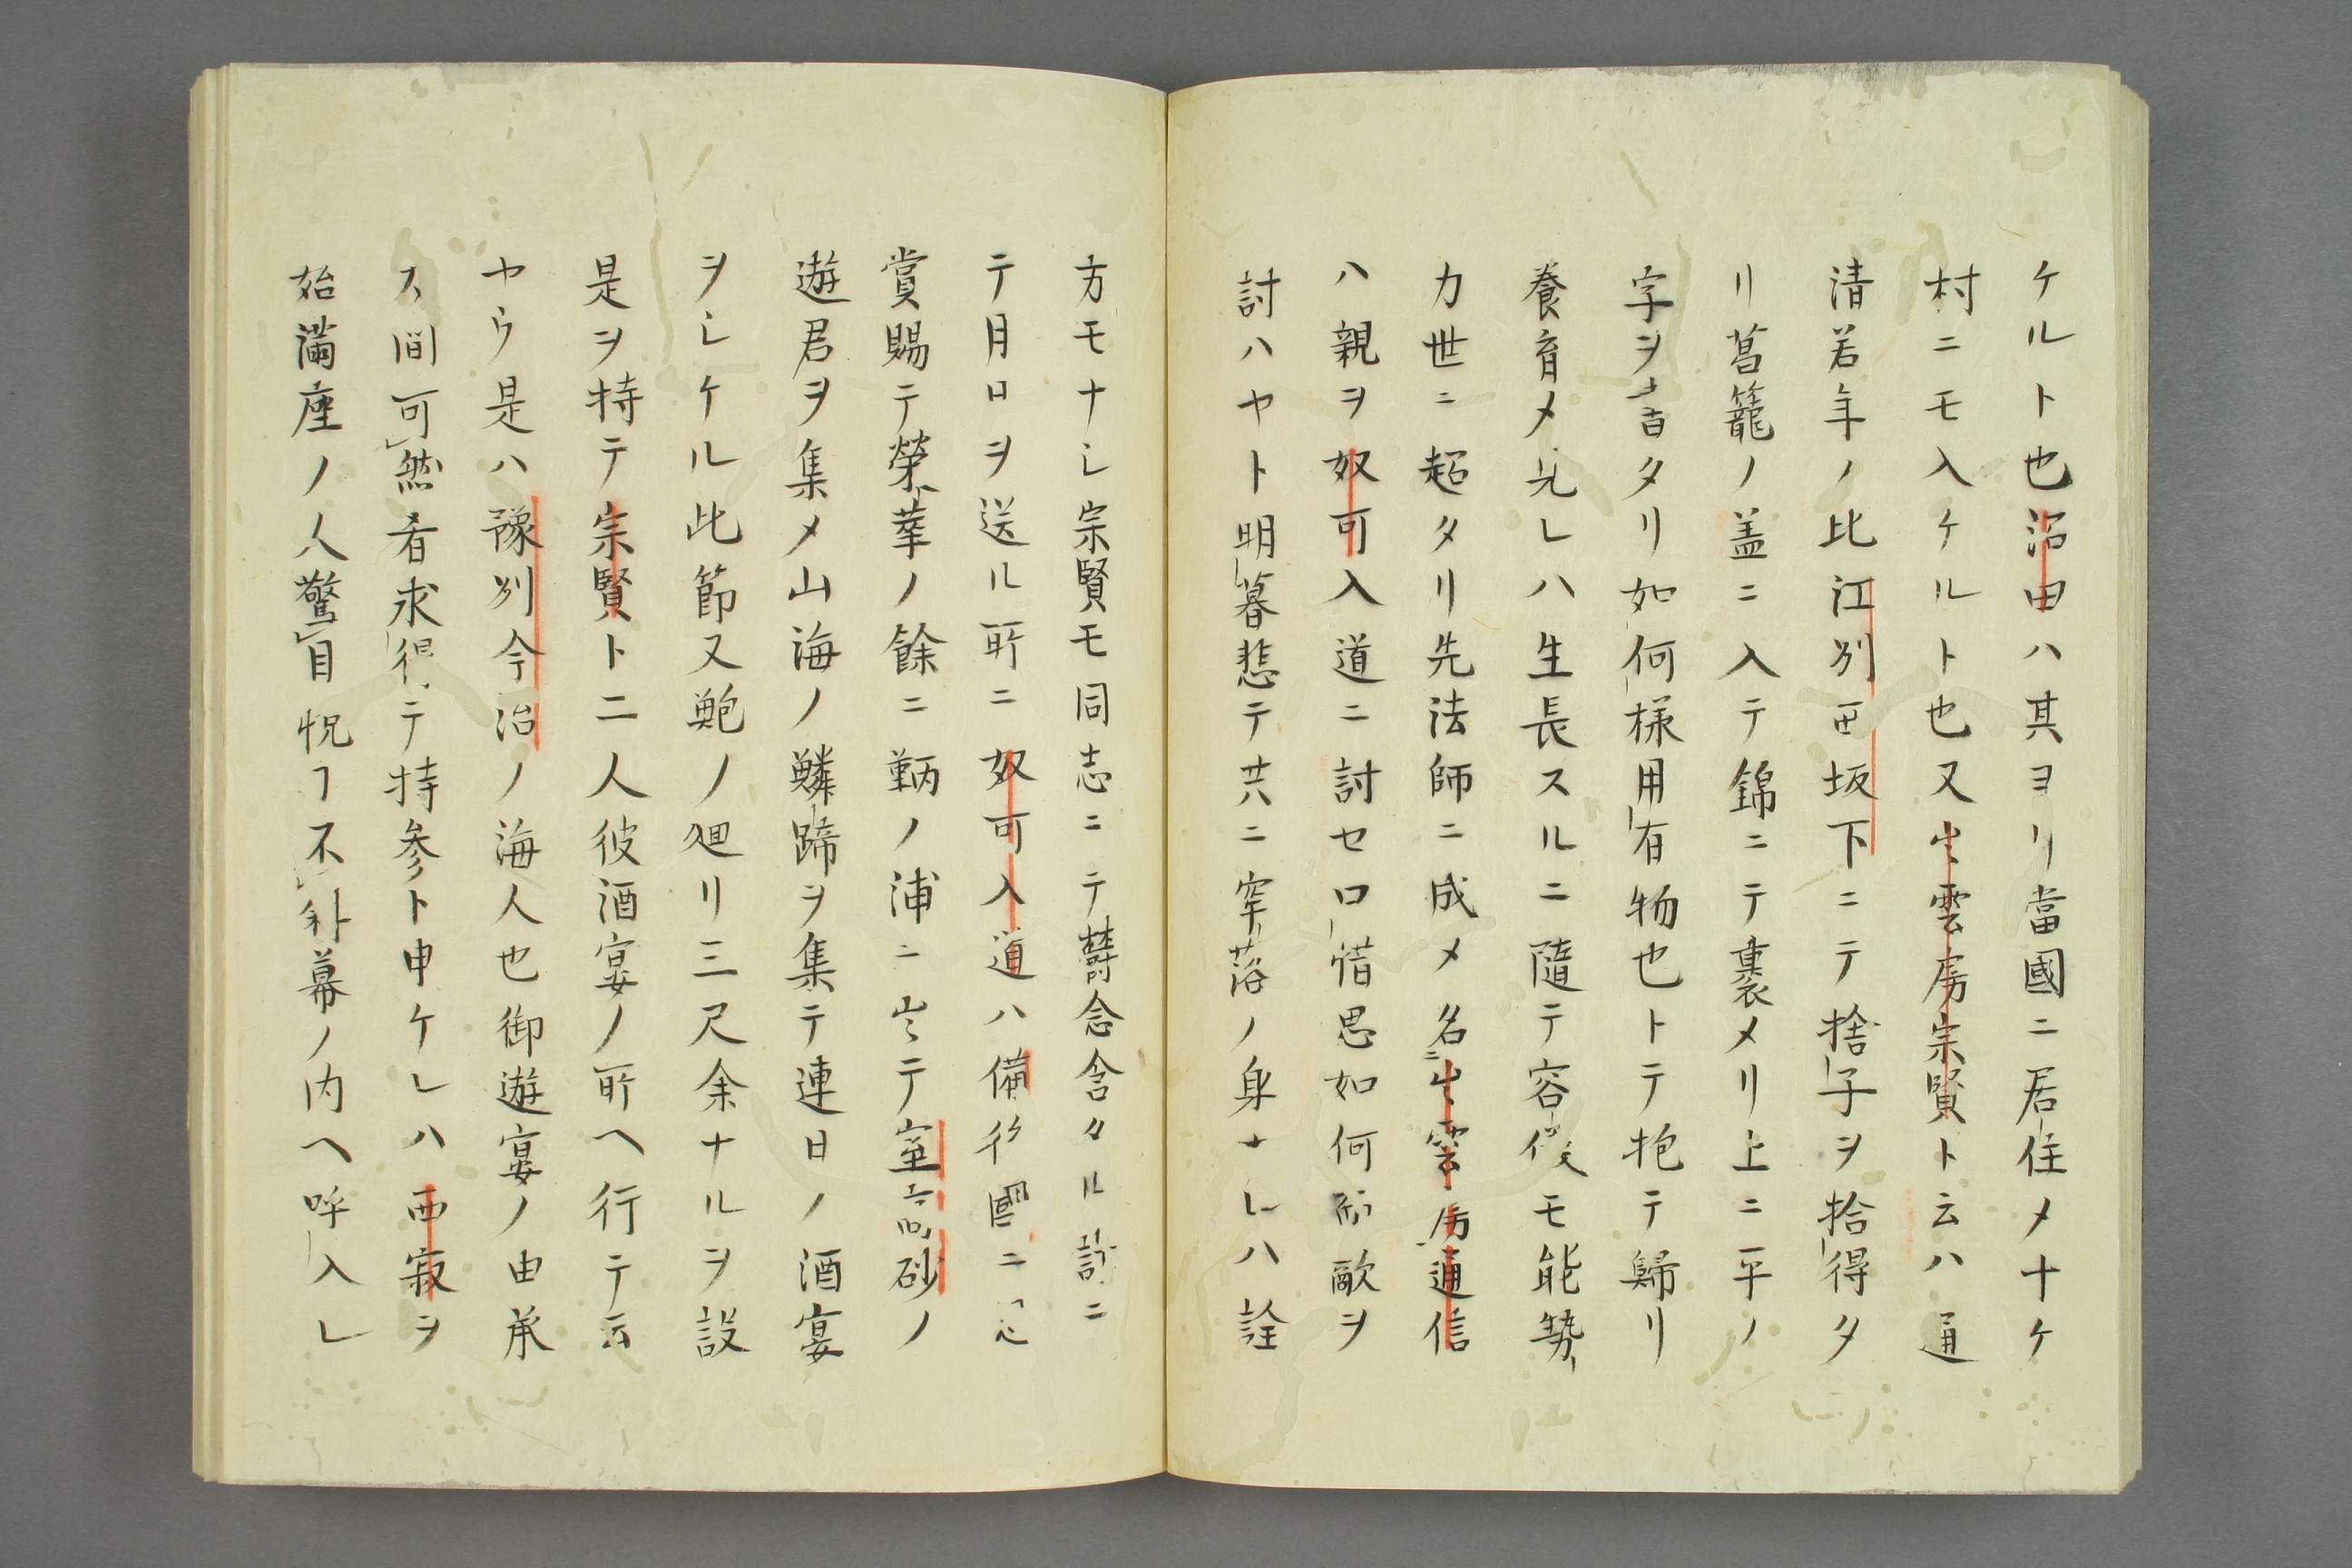 ケルト也沼田ハ其ヨリ當國ニ居住メ十ケ
村ニモ入ケルト也又出雲房宗賢ト云ハ通
清若年ノ比江列西坂下ニテ捨子ヲ拾得タ
リ菖籠ノ盖ニ入テ錦ニテ裹メリ上ニ平ノ
字ヲ書タリ如何様用有物也トテ抱テ歸リ
養育メ見レハ生長スルニ隨テ容儀モ能勢
力世ニ超タリ先法師ニ成メ名ニ出雲房通信
ハ親ヲ奴可入道ニ討セ口惜思如何ニ敵ヲ
討ハヤト明暮悲テ共ニ窂落ノ身ナレハ詮
方モナシ宗賢モ同志ニテ欝念含タル計ニ
テ月日ヲ送ル所ニ奴可入道ハ備後國ニ
賞賜テ榮華ノ餘ニ鞆ノ浦ニ出テ室高砂ノ
遊君ヲ集メ山海ノ鱗蹄ヲ集テ連日ノ酒宴
ヲシケル此節又鮑ノ廻リ三尺余ナルヲ設
是ヲ持テ宗賢ト二人彼酒宴ノ所ヘ行テ云
ヤウ是ハ豫列今治ノ海人也御遊宴ノ由承
ス間可然肴求得テ持参ト申ケレハ西寂ヲ
始滿座ノ人驚目怳ヿ不斜幕ノ内ヘ呼入レ